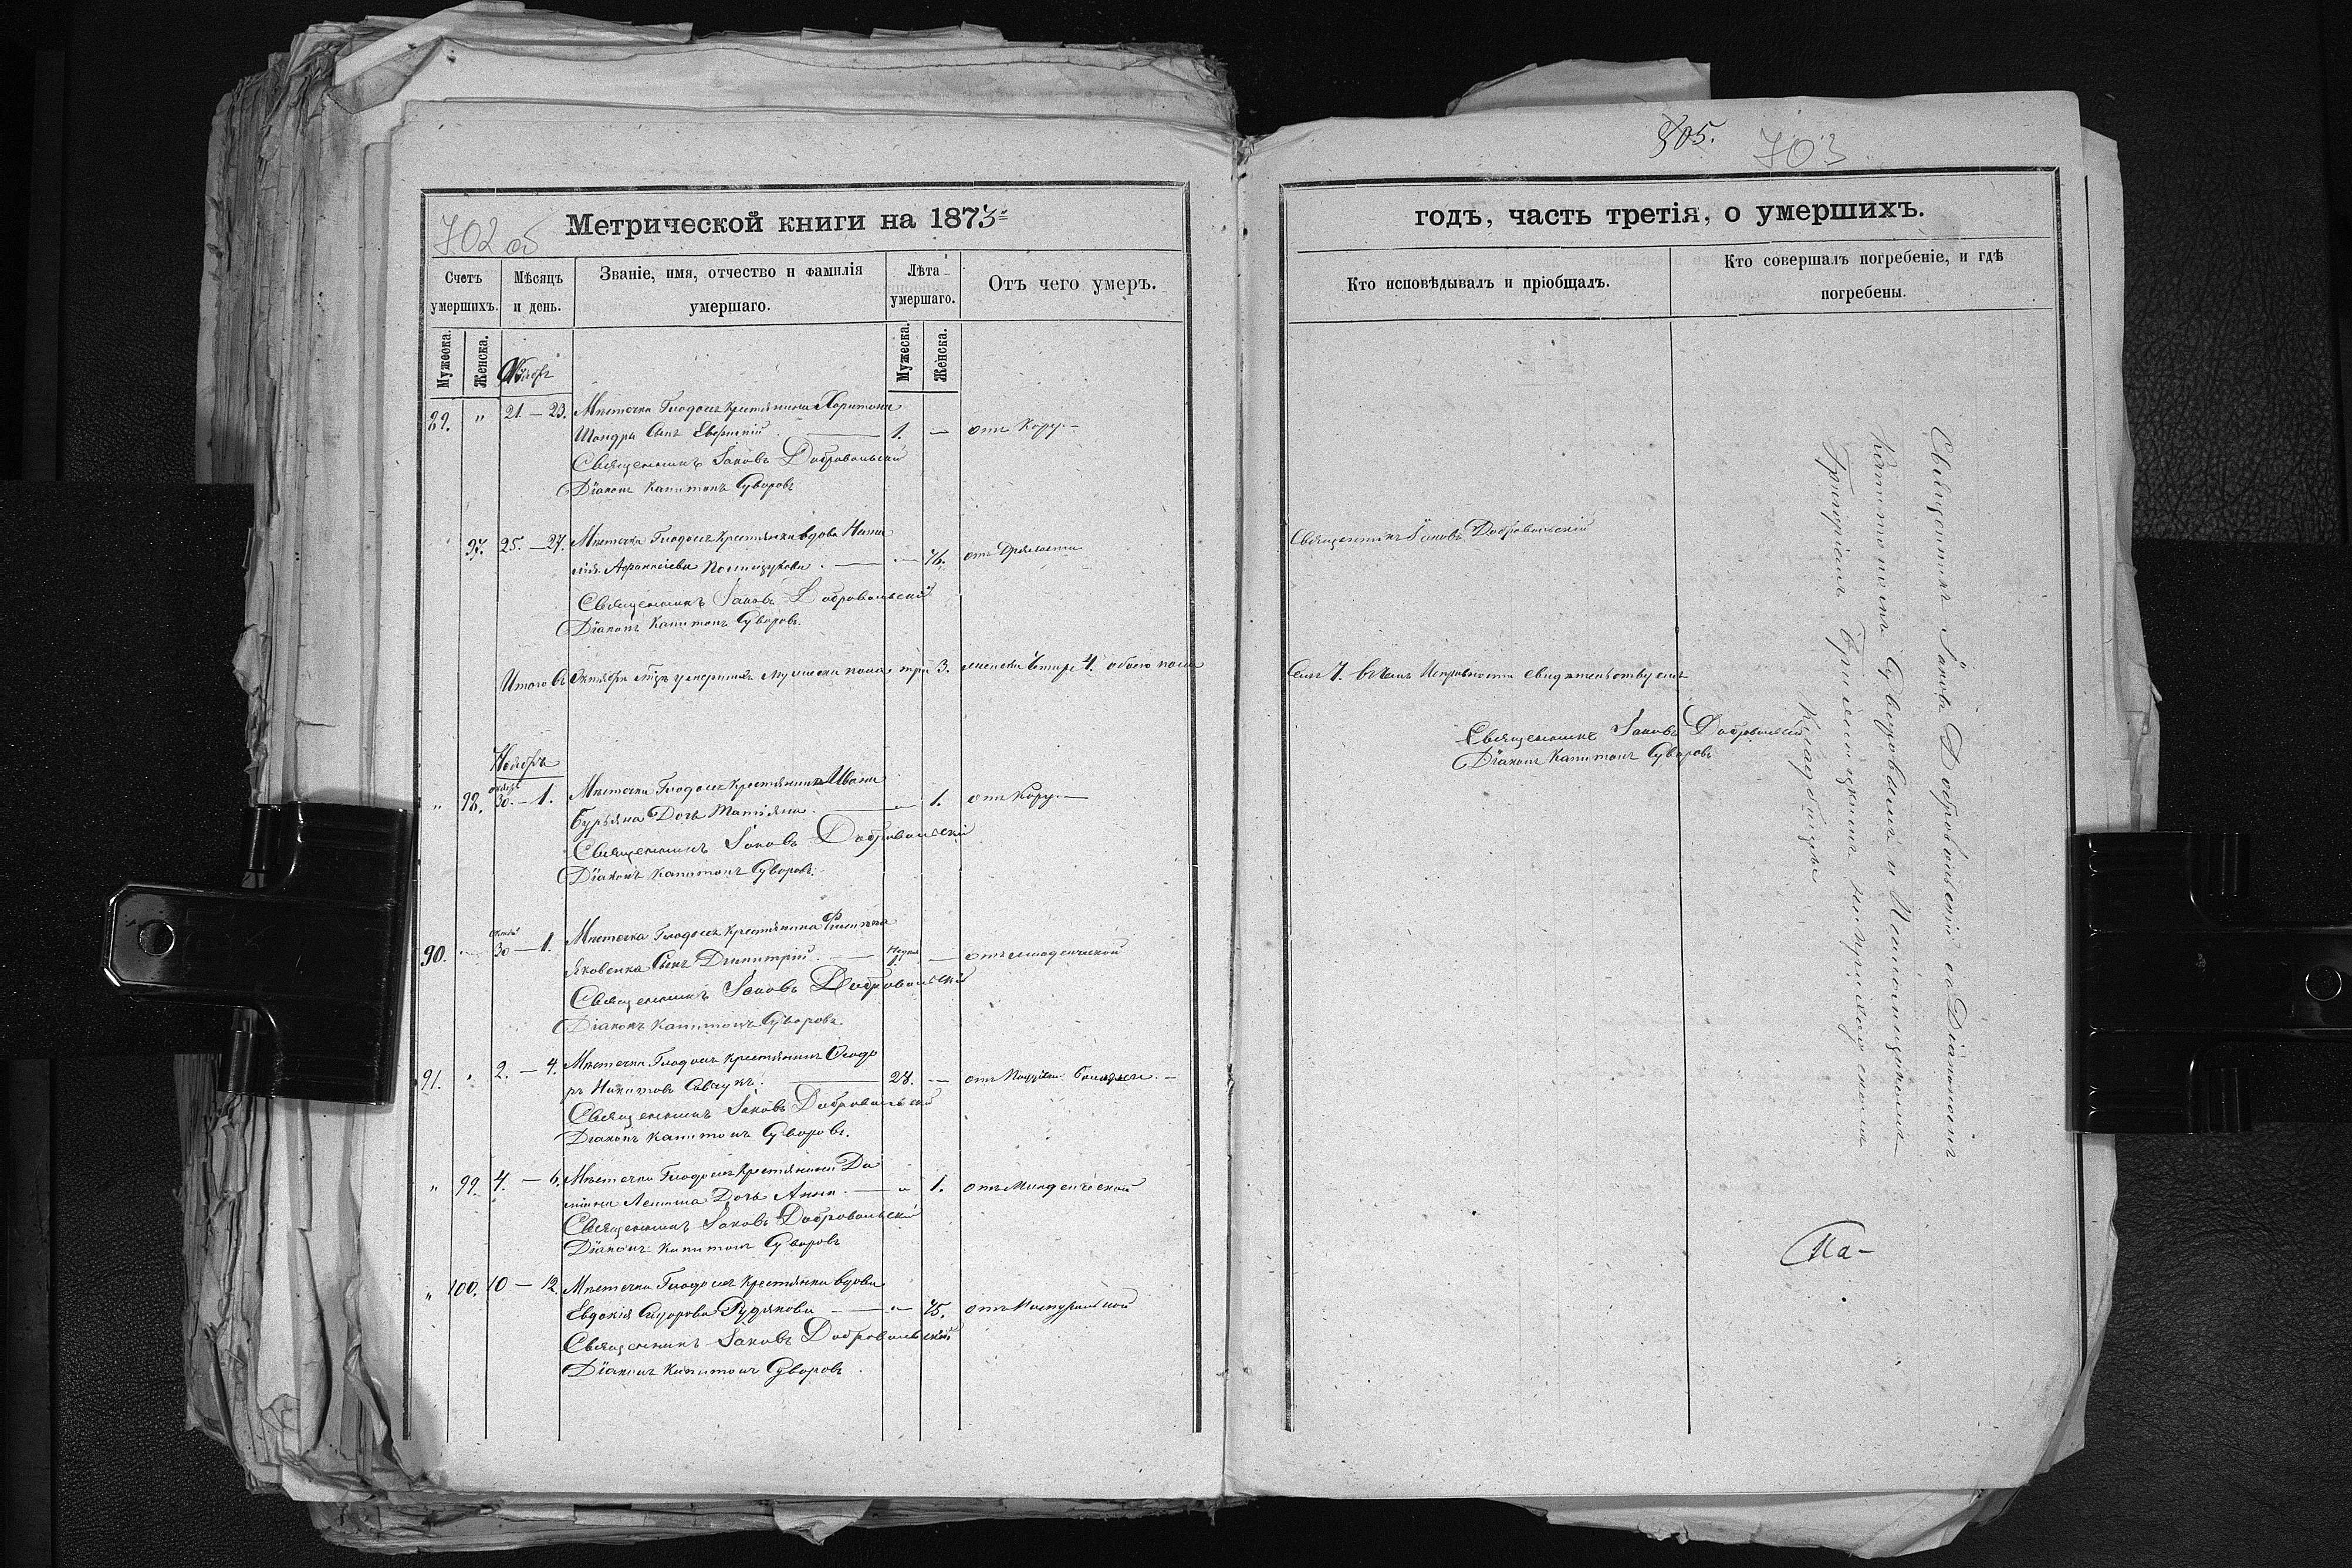 702 об
Метрической книги на 1873
Счетъ умершихъ.
Мѣсяцъ и день.
Званіе, имя, отчество и фамилія умершаго.
Лѣта умершаго.
Отъ чего умеръ.
Мужеска.
Женска.
Мужеска.
Женска.
89. " 21. – 23. Мѣстечка Глодосъ Крестянина Харитона
Шондры Сынъ 1. — отъ Кору –
Священникъ Іаковъ Добровольскій
Діаконъ Капитонъ Суворовъ
97. 25. – 27. Мѣстечка Глодосъ Крестьянка вдова
Афанасіева — 76. отъ Дряхлости
Священникъ Іаковъ Добровольскій
Діаконъ Капитонъ Суворовъ.
Итого въ Октябрѣ умершихъ мужеска пола три 3. женска 4. обоего пола
Ноябрь
" 98. октяб 30. – 1. Мѣстечка Глодосъ Крестянина Ивана
Бурьяна Дочь Татіяна. — 1. отъ Кору. —
Священникъ Іаковъ Добровольскій
Діаконъ Капитонъ Суворовъ.
90. " октяб 30 – 1. Мѣстечка Глодосъ Крестянина Филиппа
Яковенка Сынъ Димитрій. — — отъ младенческой
Священникъ Іаковъ Добровольскій
Діаконъ Капитонъ Суворовъ.
91. " 2. – 4. Мѣстечка Глодосъ Крестянинъ Ѳеодо
ръ Никитовъ Савчукъ. — 28. — отъ
Священникъ Іаковъ Добровольскій
Діаконъ Капитонъ Суворовъ.
" 99. 4. – 6. Мѣстечка Глодосъ Крестянина Да
Дочь Анна. — " 1. отъ Младенческой
Священникъ Іаковъ Добровольскій
Діаконъ Капитонъ Суворовъ
" 100. 10 – 12. Мѣстечка Глодосъ Крестянка вдова
Евдокія Сидорова Рудякова — " 75. отъ Натуральной
Священникъ Іаковъ Добровольскій
Діаконъ Капитонъ Суворовъ
805.
703
годъ, часть третія, о умершихъ.
Кто исповѣдывалъ и пріобщалъ.
Кто совершалъ погребеніе, и гдѣ погребены.
Священникъ Іаковъ Добровольскій
Семъ 7. въ чемъ свидѣтельствуемъ
Священникъ Іаковъ Добровольскій
Діаконъ Капитонъ Суворовъ
Священникъ Іаковъ Добровольскій съ Діакономъ
Капитономъ Суворовымъ и
Григоріемъ на приходскомъ
Кладбищѣ
На–